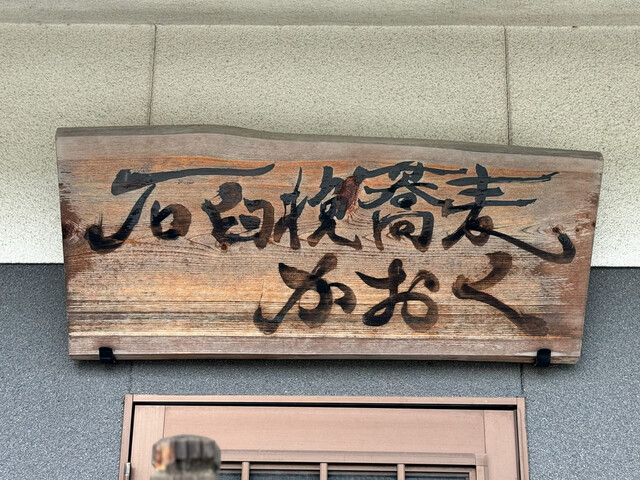 石臼挽蕎麦
かおく